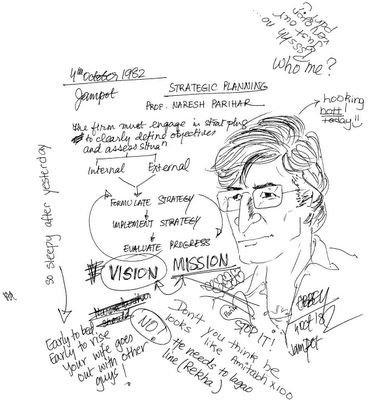 Who me?
4th October 1982
Jampot
STRATEGIC PLANNING
PROF. NARESH PARIHAR
The firm must engage in strat plng
to clearly define objectives
and assess situan
Internal External
FORMULATE STRATEGY
IMPLEMENT STRATEGY
EVALUATE PROGRESS
VISION MISSION
hooking
today!!
so sleepy after yesterday
should
NO!
STOP IT!
Early to bed
Early to rise
Your wife goes
out with other
guys!
Don't you think he
looks like Amitabh x100
He needs to lagao
line (Rekha)
Jampot